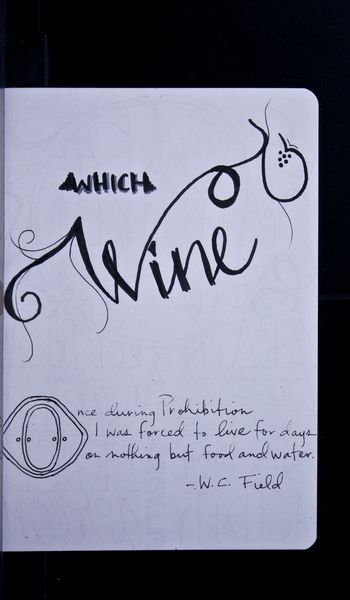 WHICH
Wine
Once during Prohibition
I was forced to live for days
on nothing but food and water.
-W.C. Field